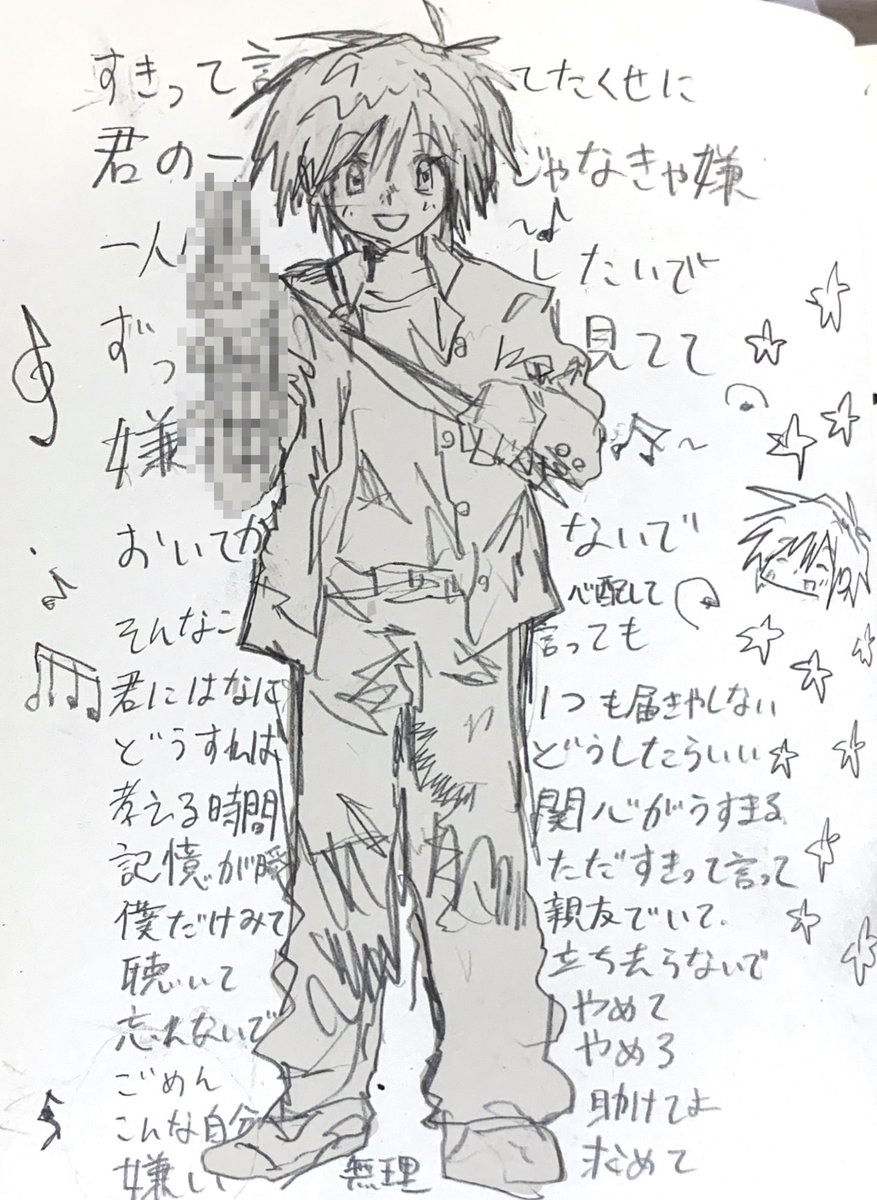 すきって言 てたくせに
君の一 じゃなきゃ嫌
一人 したいで
ずっ 見てて
嫌
おいてか ないで
心配して
そんなこ 言っても
君にはなに 1つも届きやしない
どうすれば どうしたらいい
考える時間 関心がうすまる
記憶が瞬 ただすきって言って
僕だけみて 親友でいて
聴いて 立ち去らないで
忘れないで やめて
やめろ
ごめん 助けてよ
こんな自分 求めて
嫌い 無理